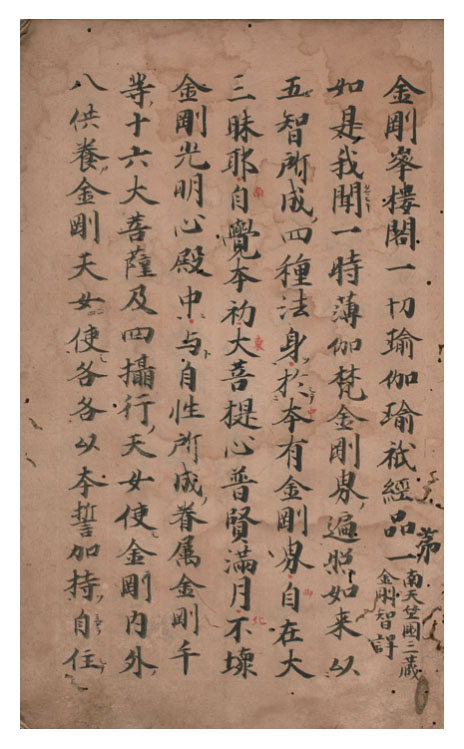 金剛峯樓閣一切瑜伽瑜祇經品
第一
南天竺國三藏
金剛智譯
如是我聞一時薄伽梵金剛界遍照如来以
五智所成四種法身於本有金剛界自在大
三昧耶自覺本初大菩提心普賢滿月不壞
金剛光明心殿中与自性所成眷属金剛手
等十六大菩薩及四攝行天女使金剛内外
八供養金剛天女使各各以本誓加持自住
南
東
中
西
北